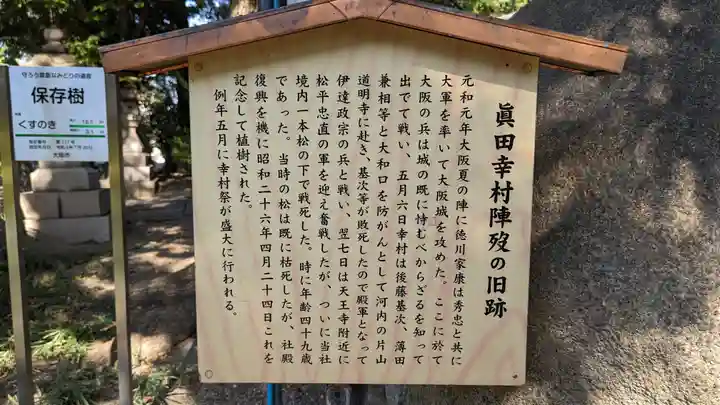 眞田幸村陣歿の旧跡
元和元年大阪夏の陣に徳川家康は秀忠と共に
大軍を率いて大阪城を攻めた。ここに於て
大阪の兵は城の既に恃むべからざるを知って
出でて戦い、五月六日幸村は後藤基次、薄田
兼相等と大和口を防がんとして河内の片山
道明寺に赴き、基次等が敗死したので殿軍となって
伊達政宗の兵と戦い、翌七日は天王寺附近に
松平忠直の軍を迎え奮戦したが、ついに当社
境内一本松の下で戦死した。時に年齢四十九歳
であった。当時の松は既に枯死したが、社殿
復興を機に昭和二十六年四月二十四日これを
記念して植樹された。
例年五月に幸村祭が盛大に行われる。
守ろう貴重なみどりの遺産
保存樹
くすのき
大阪市